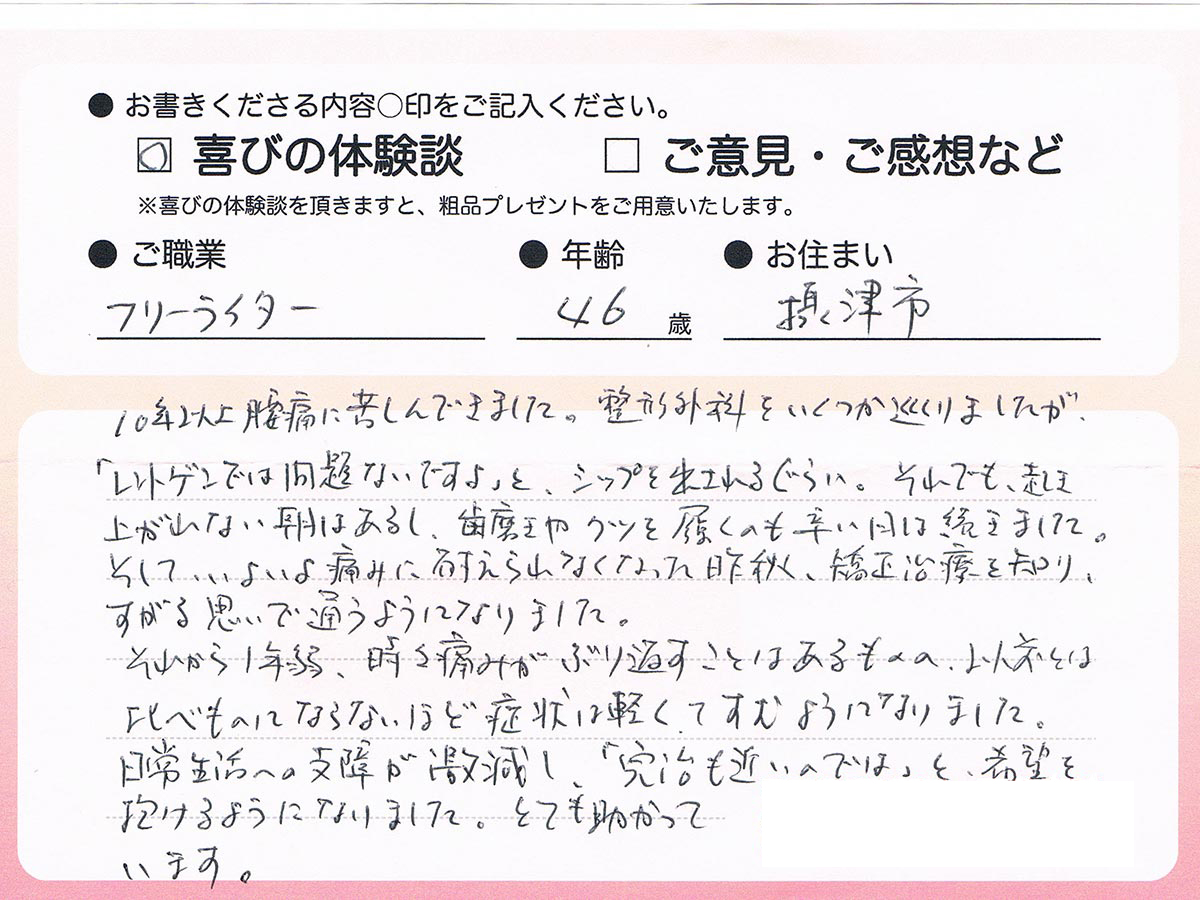 ● お書きくださる内容○印をご記入ください。
☑ 喜びの体験談 □ ご意見・ご感想など
※喜びの体験談を頂きますと、粗品プレゼントをご用意いたします。
● ご職業 ● 年齢 ● お住まい
フリーライター 46 歳 摂津市
10年以上腰痛に苦しんできました。整形外科をいくつか巡りましたが、
「レントゲンでは問題ないですよ」と、シップを出されるぐらい。それでも、起き
上がれない朝はあるし、歯磨きやクツを履くのも辛い日は続きました。
そして、いよいよ痛みに耐えられなくなった昨秋、矯正治療を知り、
すがる思いで通うようになりました。
それから1年弱、時々痛みがぶり返すことはあるものの、以前とは
比べものにならないほど症状は軽くてすむようになりました。
日常生活への支障が激減し、「完治も近いのでは」と、希望を
抱けるようになりました。とても助かって
います。